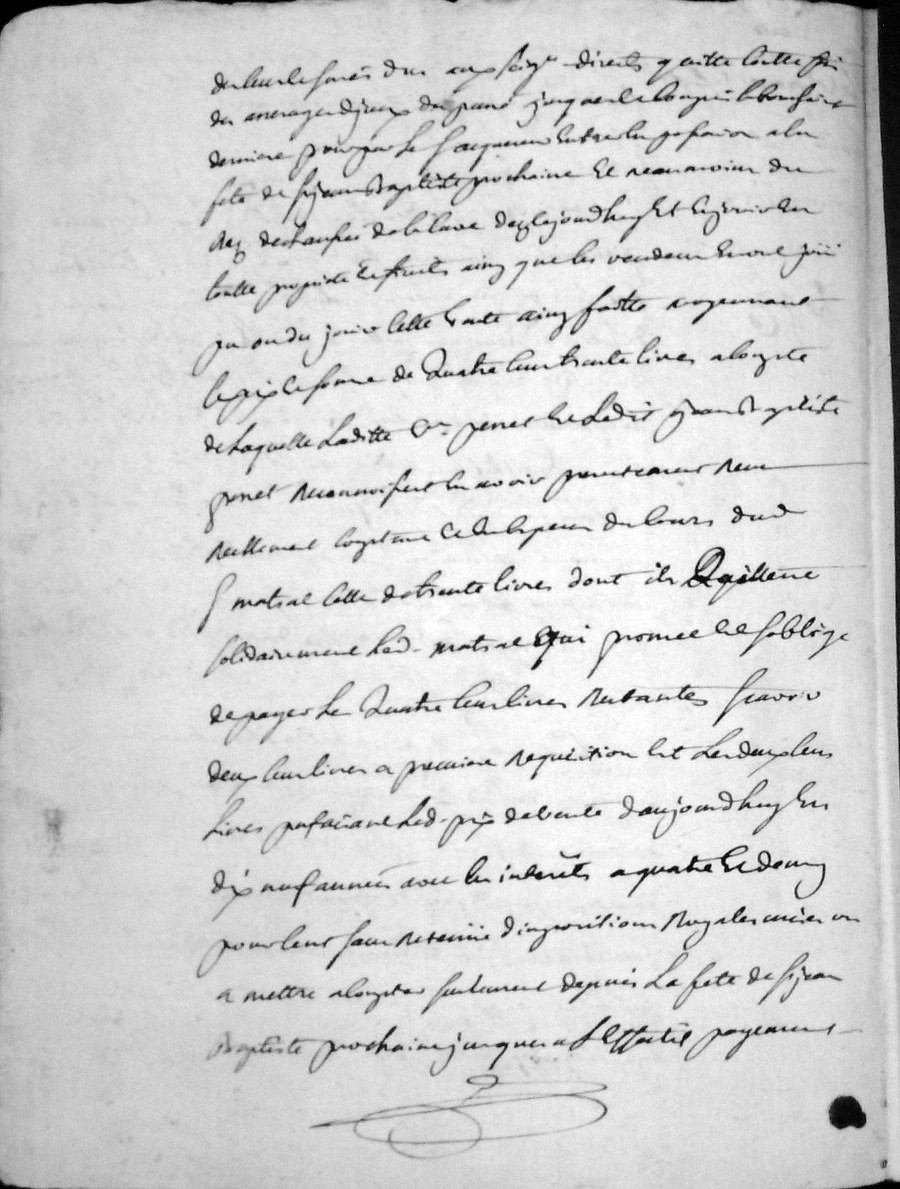 directs quitte toutte fois
des arrerages d'jceux du passé jusques le
derniere pour par le sacquereur entrer en possession a la
fete de st jean Baptiste prochaine et neanmoins du
rez de chaussés de la cave dez lejourdhuy Et en jouir en
toutte propriete et fruits ainsy que les vendeurs en ont joui
pu ou du jouir Cette Vente ainsy faitte moyennant
le prix et somme de Quatre Cent trente livres a Compte
de Laquelle Laditte Ve perret et Ledit jean Baptiste
perret Reconnoissent En avoir presentement Reçu
Reellement Comptant et En Especes du Cours dud
s matral Celle de trente livres dont ils Quittent
solidairement Led. matral Qui promet et soblige
de payer Les Quatre Cent livres Restantes scavoir
deux Cent livres a premiere Requisition Et Les deux Cent
Livres parfaisant Led. prix de Vente d'aujourdhuy En
dix neuf années avec les interêts a quatre Et demy
pour Cent sans Retenüe d'impositions Royales mises ou
a mettre a Compter seulement depuis La fete de st jean
Baptiste prochaine jusques a L'Effectif payement